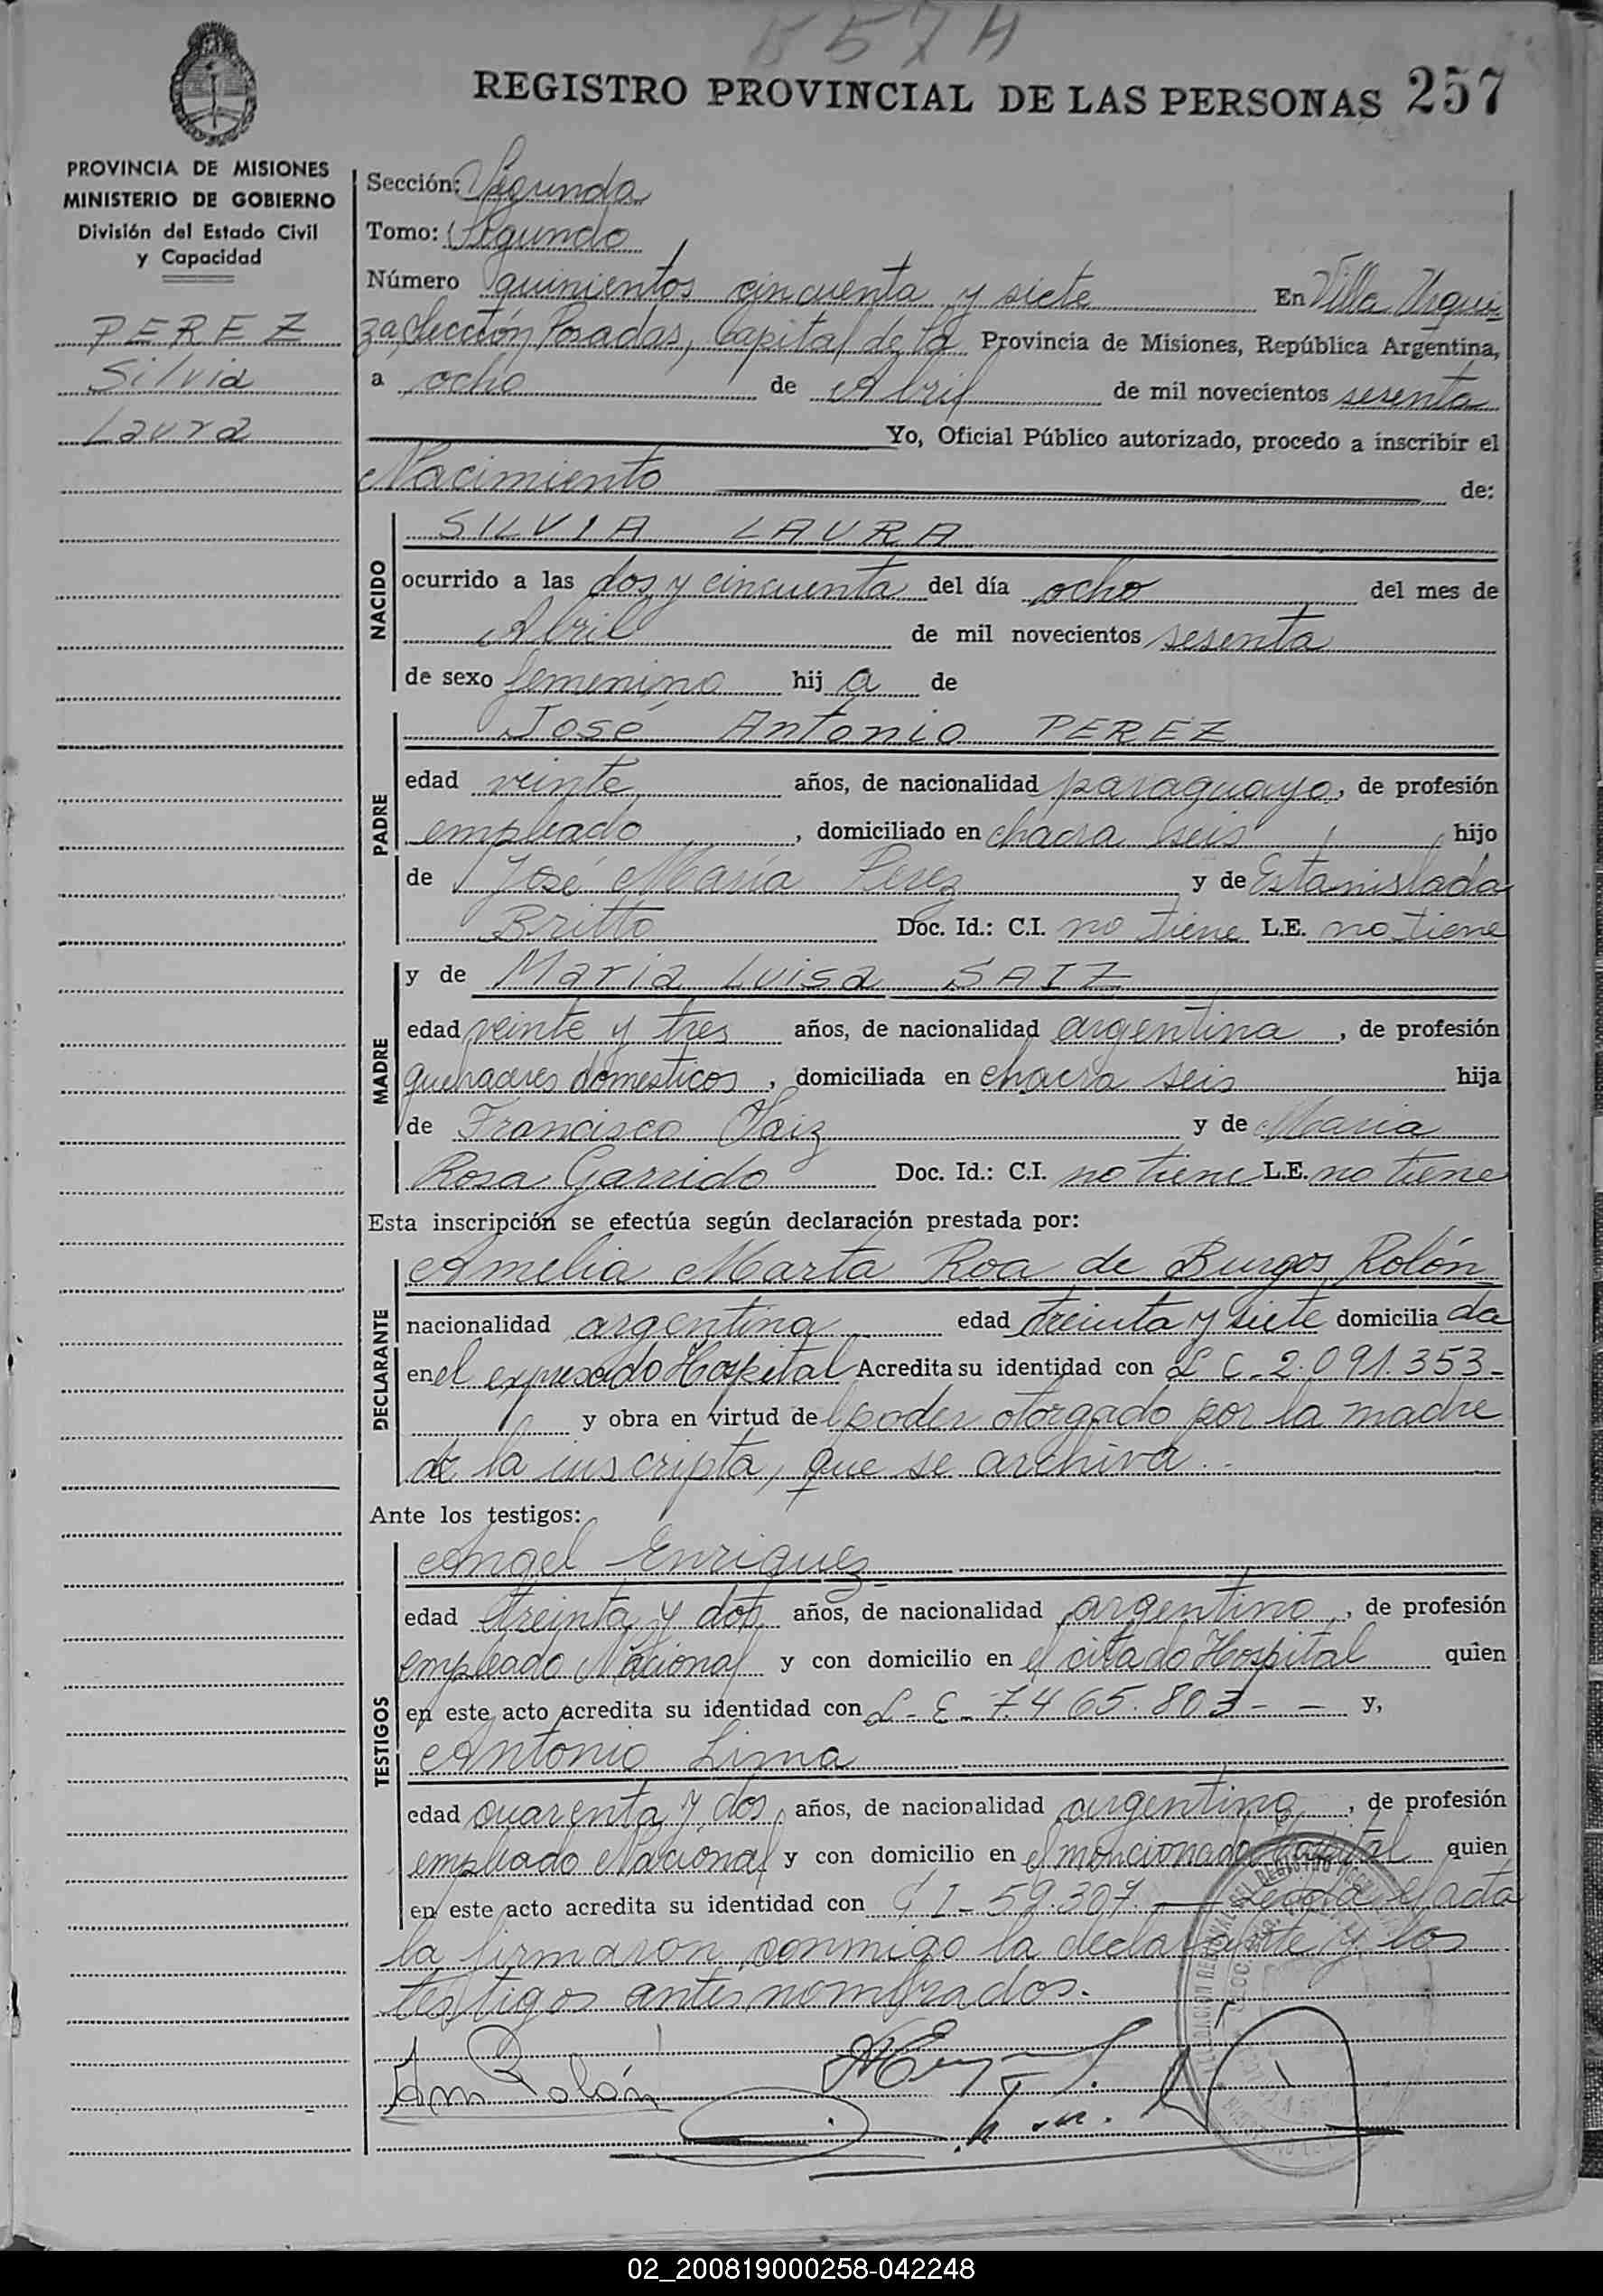 557 H
REGISTRO PROVINCIAL DE LAS PERSONAS 257
PROVINCIA DE MISIONES
MINISTERIO DE GOBIERNO
División del Estado Civil
y Capacidad
PEREZ
Silvia
Laura
Sección: Segunda
Tomo: Segundo
Número quinientos cincuenta y siete En Villa Urqui-
za, Sección Posadas, Capital de la Provincia de Misiones, República Argentina,
a ocho de Abril de mil novecientos sesenta
Yo, Oficial Público autorizado, procedo a inscribir el
Nacimiento de:
NACIDO
SILVIA LAURA
ocurrido a las dos y cincuenta del día ocho del mes de
Abril de mil novecientos sesenta
de sexo femenino hij a de
PADRE
José Antonio PEREZ
edad veinte años, de nacionalidad paraguayo, de profesión
empleado, domiciliado en chacra seis hijo
de José María Perez y de Estanislada
Britto Doc. Id.: C.I. no tiene L.E. no tiene
MADRE
y de Maria Luisa SAIZ
edad veinte y tres años, de nacionalidad argentina, de profesión
quehaceres domesticos, domiciliada en chacra seis hija
de Francisco Saiz y de Maria
Rosa Garrido Doc. Id.: C.I. no tiene L.E. no tiene
Esta inscripción se efectúa según declaración prestada por:
DECLARANTE
Amelia Marta Roa de Burgos Rolón
nacionalidad argentina edad treinta y siete domicilia da
en el expresado Hospital Acredita su identidad con L C - 2.091.353-
y obra en virtud del poder otorgado por la madre
de la inscripta, que se archiva..
Ante los testigos:
TESTIGOS
Angel Enriquez
edad treinta y dos años, de nacionalidad argentino, de profesión
empleado Nacional y con domicilio en el citado Hospital quien
en este acto acredita su identidad con L - E - 7.465.803 - - y,
Antonio Lima
edad cuarenta y dos, años, de nacionalidad argentino, de profesión
empleado Nacional y con domicilio en el moncionado Hospital quien
en este acto acredita su identidad con C I - 59.307. — Leída el acta
la firmaron conmigo la declarante y los
testigos antes nombrados.
Am Rolón
02_200819000258-042248